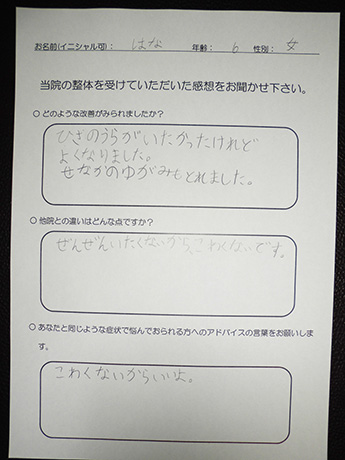 お名前(イニシャル可): はな 年齢: 6 性別: 女
当院の整体を受けていただいた感想をお聞かせ下さい。
○ どのような改善がみられましたか？
ひざのうらがいたかったけれど
よくなりました。
せなかのゆがみもとれました。
○ 他院との違いはどんな点ですか？
ぜんぜんいたくないから、こわくないです。
○ あなたと同じような症状で悩んでおられる方へのアドバイスの言葉をお願いしま
す。
こわくないからいいよ。